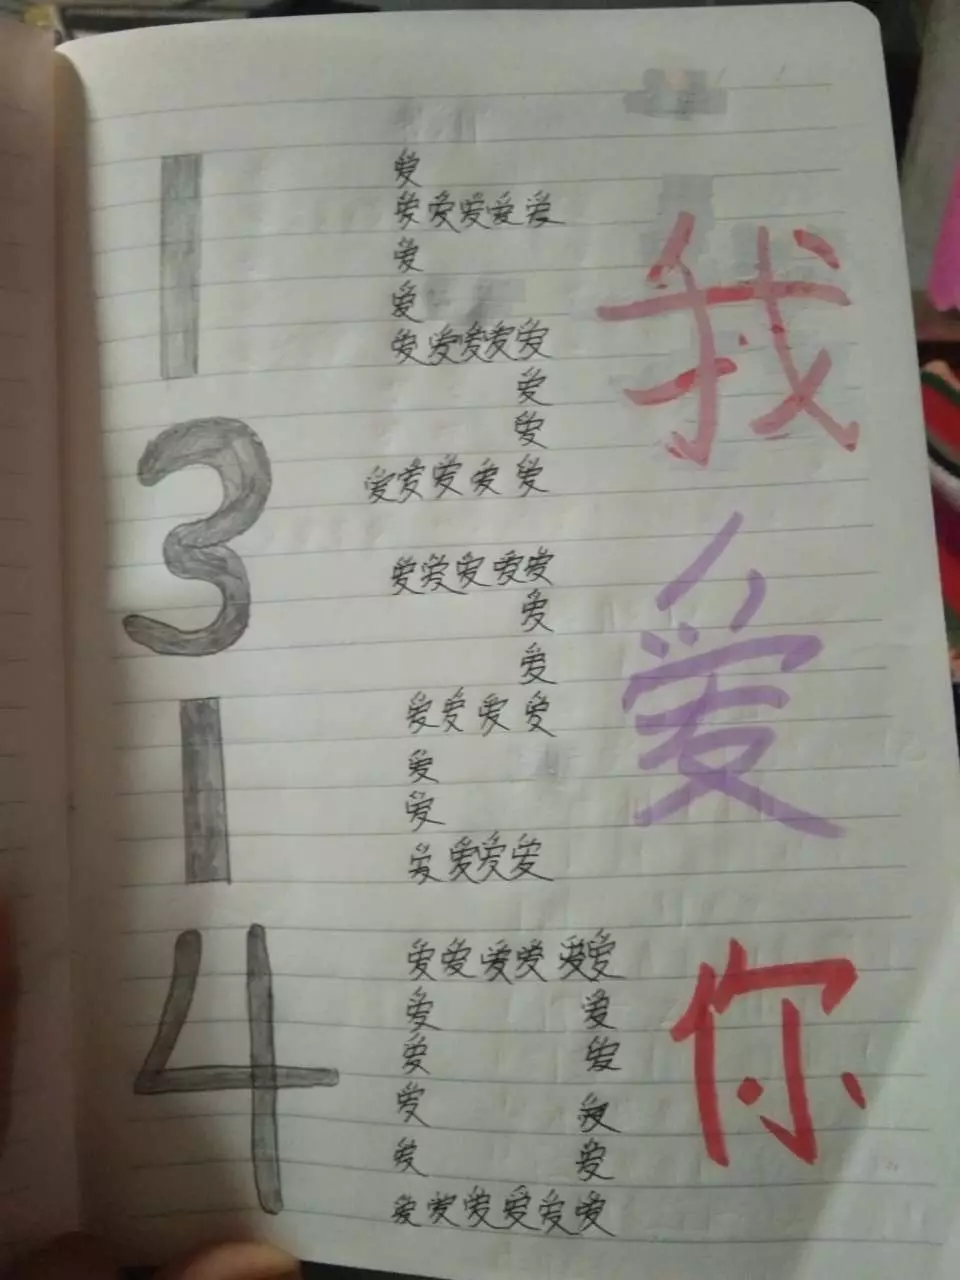 1
3
1
4
爱
爱爱爱爱爱
爱
爱
爱爱爱爱爱
爱
爱
爱爱爱爱爱
爱爱爱爱爱
爱
爱
爱爱爱爱
爱
爱
爱爱爱爱
爱爱爱爱爱爱
爱 爱
爱 爱
爱 爱
爱 爱
爱爱爱爱爱爱
我
爱
你